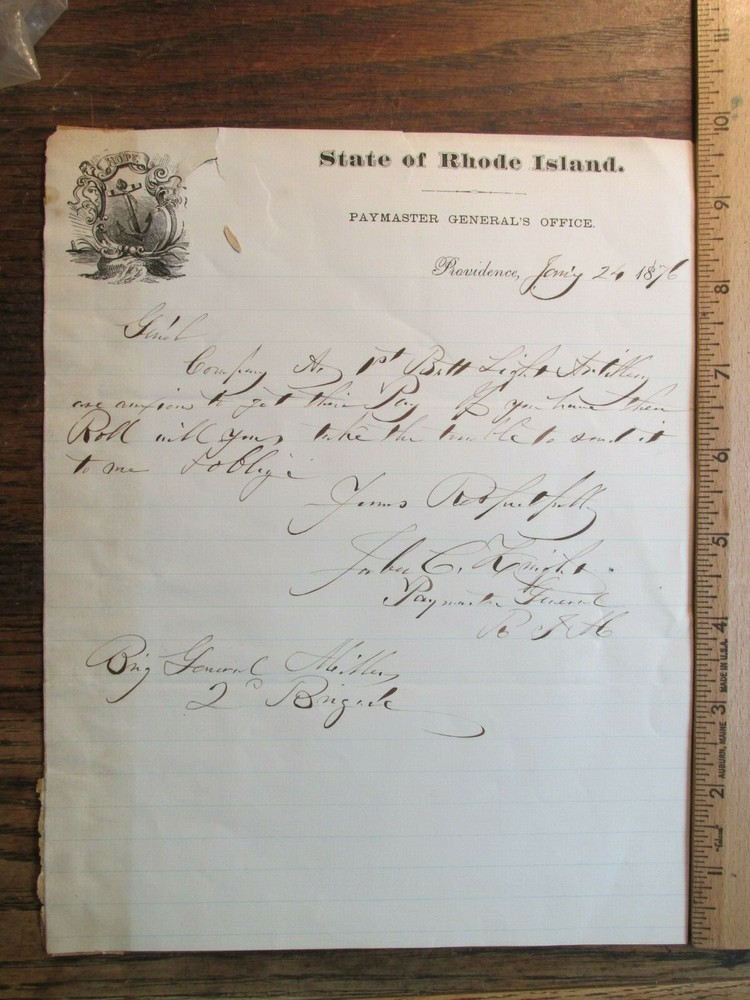 HOPE
State of Rhode Island.
PAYMASTER GENERAL'S OFFICE.
Providence, Jan'y 24 1876
Gen'l
Company A, 1st Batt Light Artillery
are anxious to get their Pay If you have their
Roll will you take the trouble to send it
to me & oblige
Yours Respectfully
Jabez C. Knight.
Paymaster General
R I M
Brig General Miller
2d Brigade
11
10
9
8
7
6
5
4
3
2
1
MADE IN U.S.A.
AUBURN, MAINE